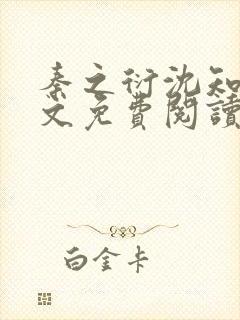 秦之衍沈知
文免費閱讀
白金卡